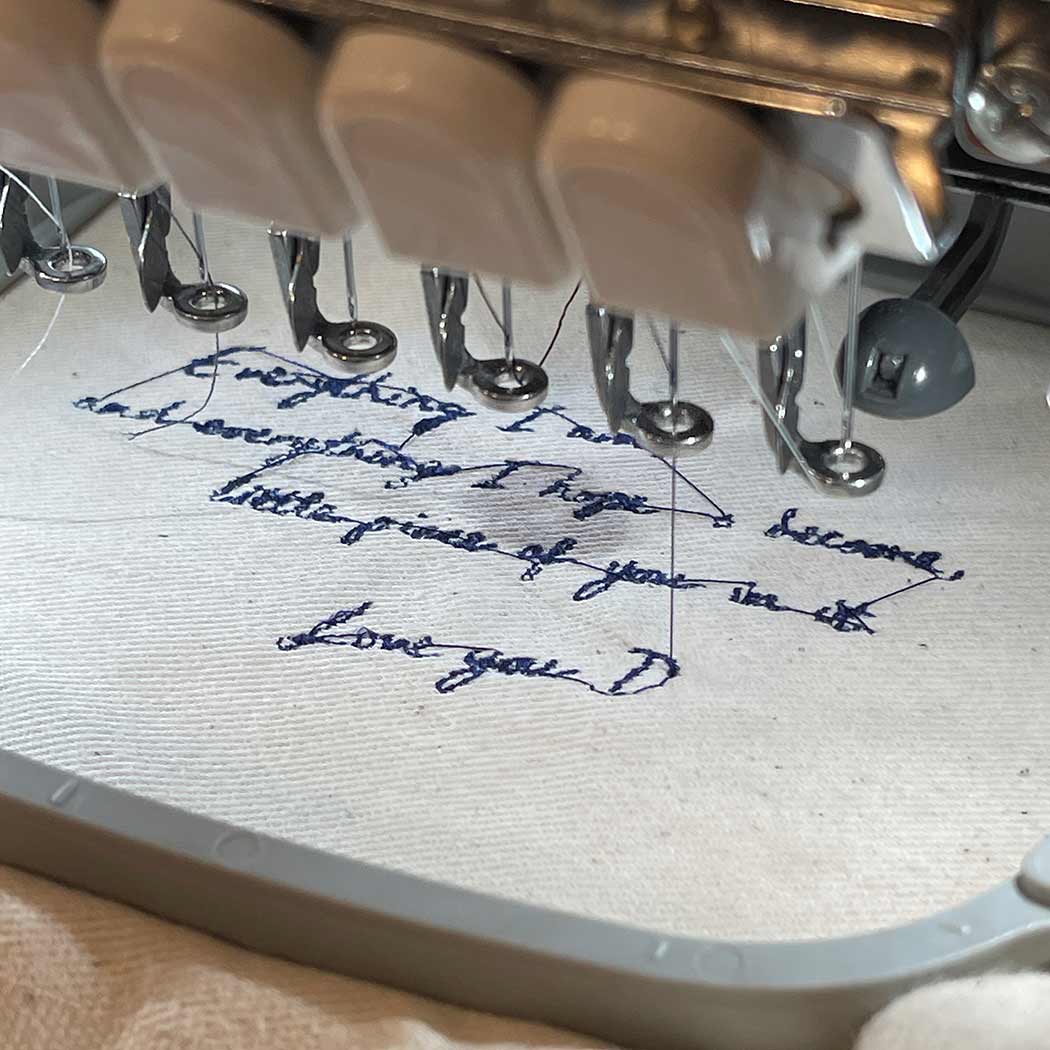 Everything I am
and everything I hope become,
little piece of you in it
Love you D